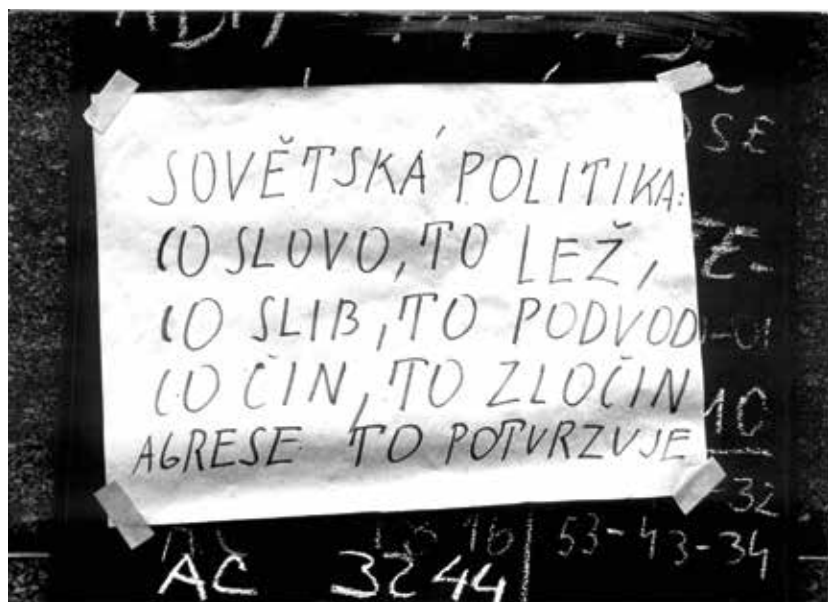 SOVĚTSKÁ POLITIKA:
CO SLOVO, TO LEŽ,
CO SLIB, TO PODVOD
CO ČIN, TO ZLOČIN
AGRESE TO POTVRZUJE
10
-32
16
53-43-34
AČ 3244